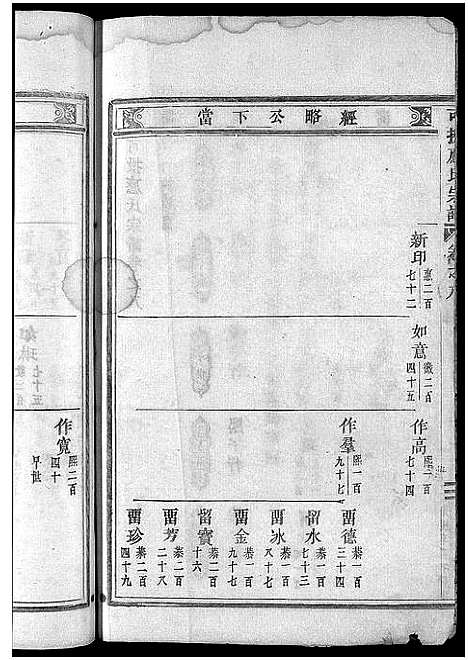 經略公下當
新印 惠二百七十二
如意 徽二百四十五
作高 熙二百七十四
作羣 熙一百九十七
畱德 恭一百三十四
畱水 恭一百七十三
畱冰 恭一百八十七
畱金 恭一百九十七
畱寶 恭二百十六
畱芳 恭二百二十八
畱珍 恭二百四十九
作寬 熙二百四十 早世